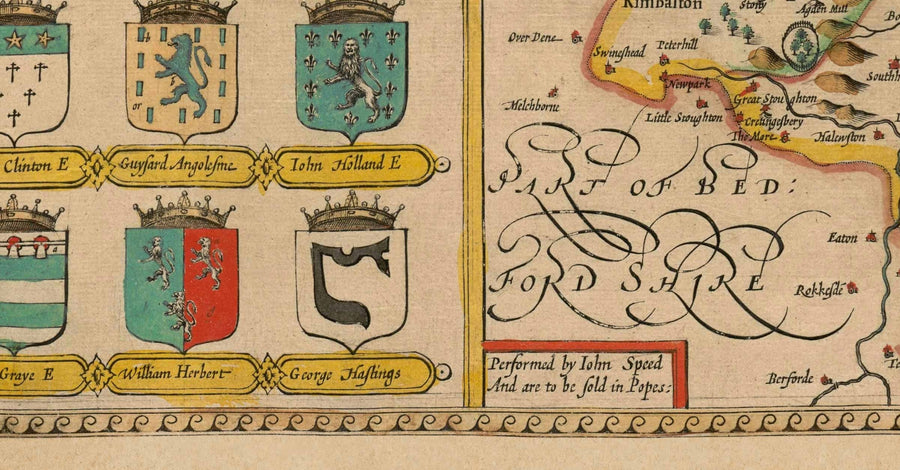 or
Clinton E
Guysard Angolesme
Iohn Holland E
Graye E
William Herbert
George Hastings
Kimbalton
Stony
Agden Mill
Over Dene
Swineshead
Peterhill
Newpark
Melchborne
Little Stoughton
Great Stoughton
Cretingesbery
The More
Halewston
South
PART OF BED:
FORD SHIRE
Eaton
Rokkesdē
Berforde
Performed by Iohn Speed
And are to be sold in Popes: